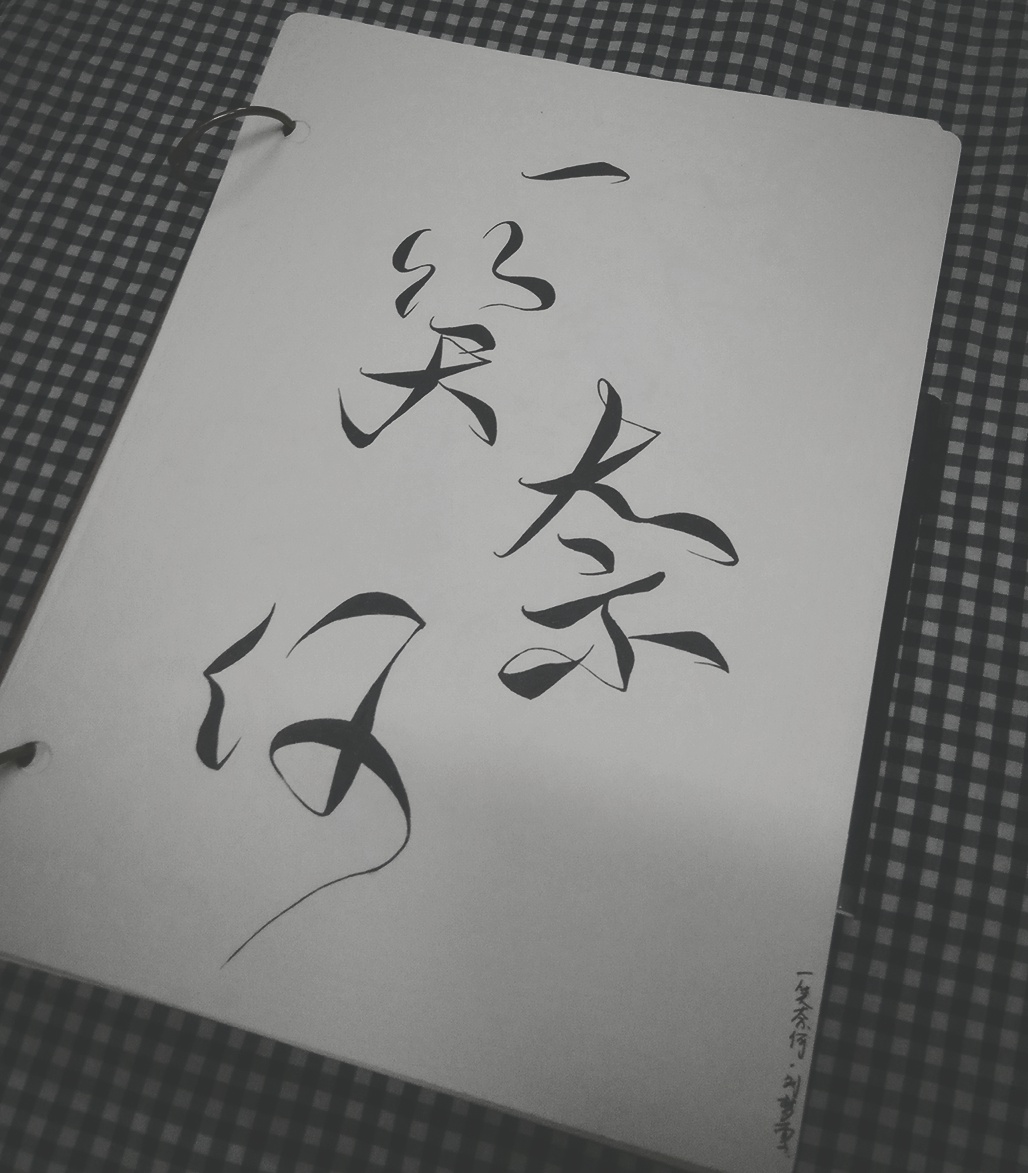 一笑奈何
一笑奈何·刘